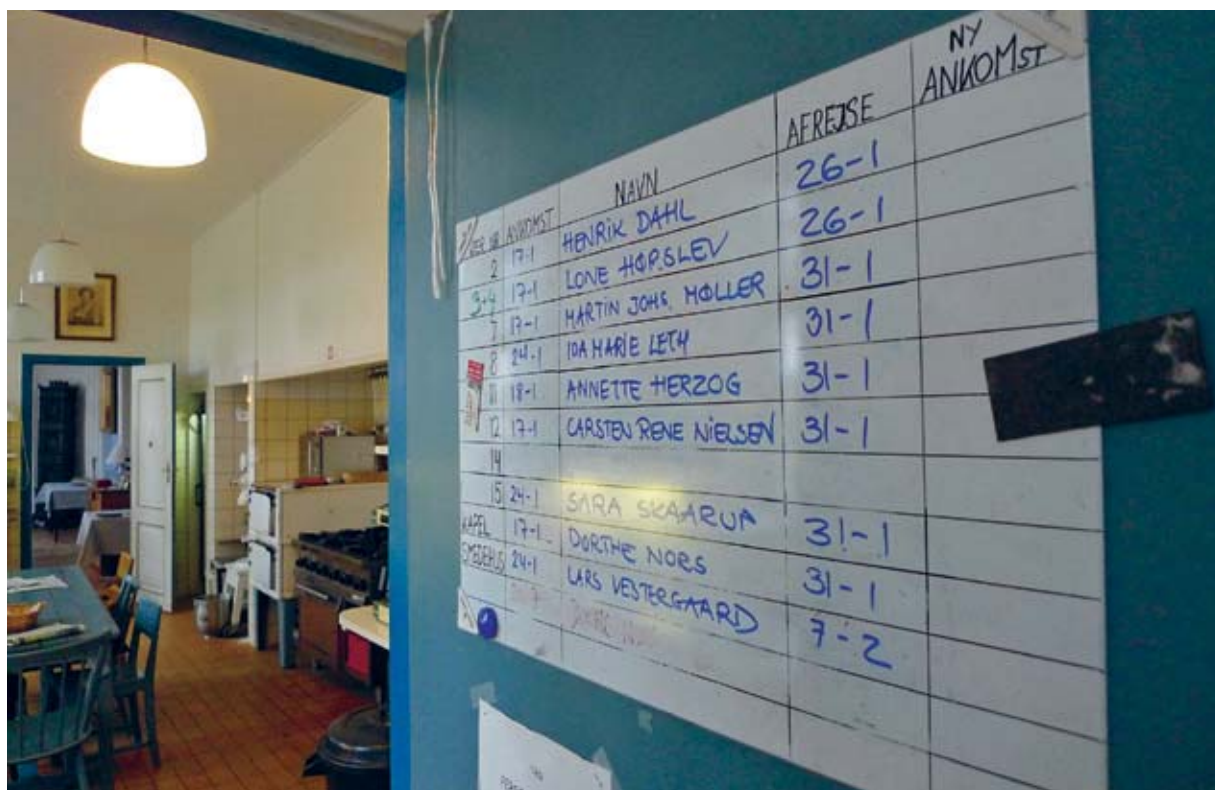 NR ANKOMST NAVN AFREJSE NY ANKOMST
2 17-1 HENRIK DAHL 26-1
3+4 17-1 LONE HØRSLEV 26-1
7 17-1 MARTIN JOHS. MØLLER 31-1
8 24-1 IDA MARIE LETH 31-1
11 18-1 ANNETTE HERZOG 31-1
12 17-1 CARSTEN RENE NIELSEN 31-1
14
15 24-1 SARA SKAARUP 31-1
KAPEL 17-1 DORTHE NORS 31-1
SMEDEHUS 24-1 LARS VESTERGAARD 7-2